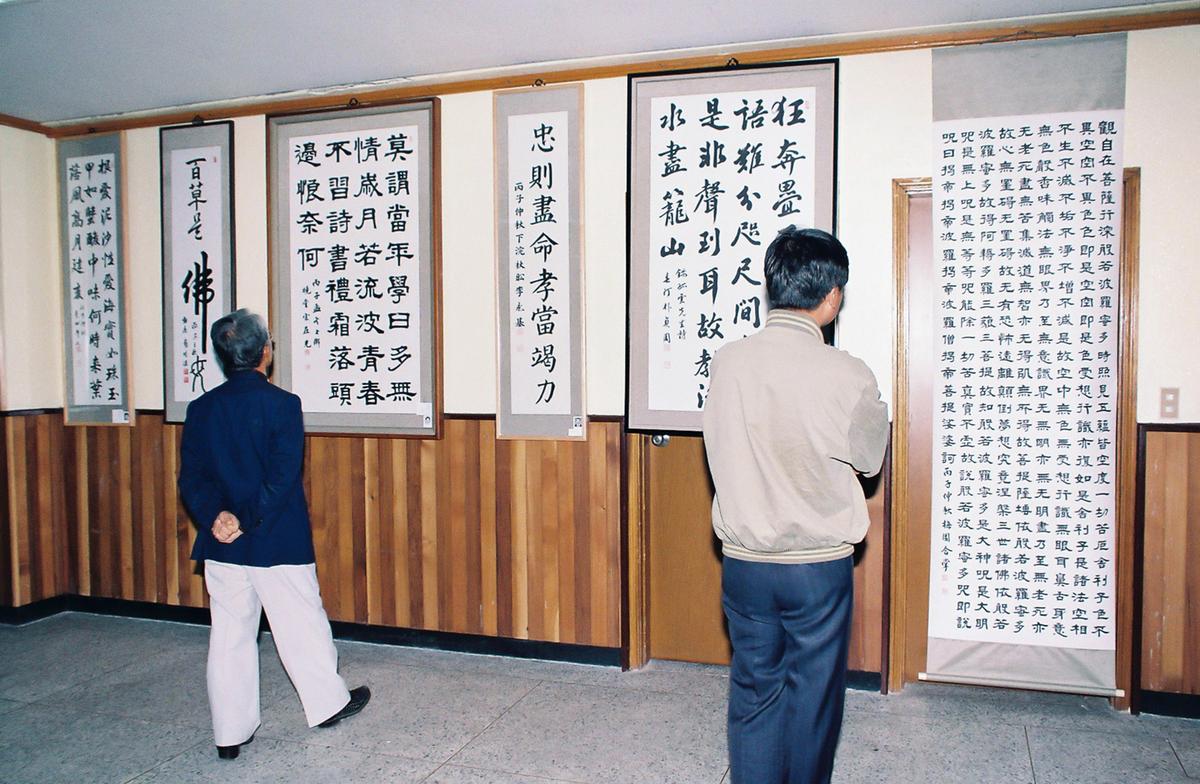 根愛泥沙性愛海實如珠玉
甲如蟹酸中味何時來葉
落風高月過
百草是
佛
莫謂當年學日多無
情歲月若流波青春
不習詩書禮霜落頭
邊恨奈何
忠則盡命孝當竭力
丙子仲秋下浣
狂奔疊
語難分咫尺間
是非聲到耳故教流
水盡籠山
錄孤雲先生詩
觀自在菩薩行深般若波羅蜜多時照見五蘊皆空度一切苦厄舍利子色不
異空空不異色色即是空空即是色受想行識亦復如是舍利子是諸法空相
不生不滅不垢不淨不增不減是故空中無色無受想行識無眼耳鼻舌身意
無色聲香味觸法無眼界乃至無意識界无無明亦無无明盡乃至無老死亦
无老死盡無苦集滅道無智亦无得以無所得故菩提薩埵依般若波羅蜜多
故心無罣碍无罣碍故無有恐怖遠離顛倒夢想究竟涅槃三世諸佛依般若
波羅蜜多故得阿耨多羅三藐三菩提故知般若波羅蜜多是大神呪是大明
呪是無上呪是無等等呪能除一切苦真實不虛故說般若波羅蜜多呪即說
呪曰揭帝揭帝波羅揭帝波羅僧揭帝菩提娑婆訶丙子仲秋梅園合掌